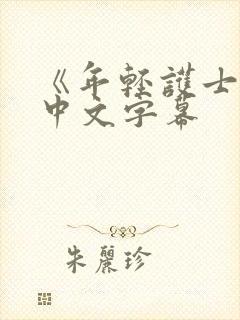 《年轻護士
中文字幕
朱麗珍